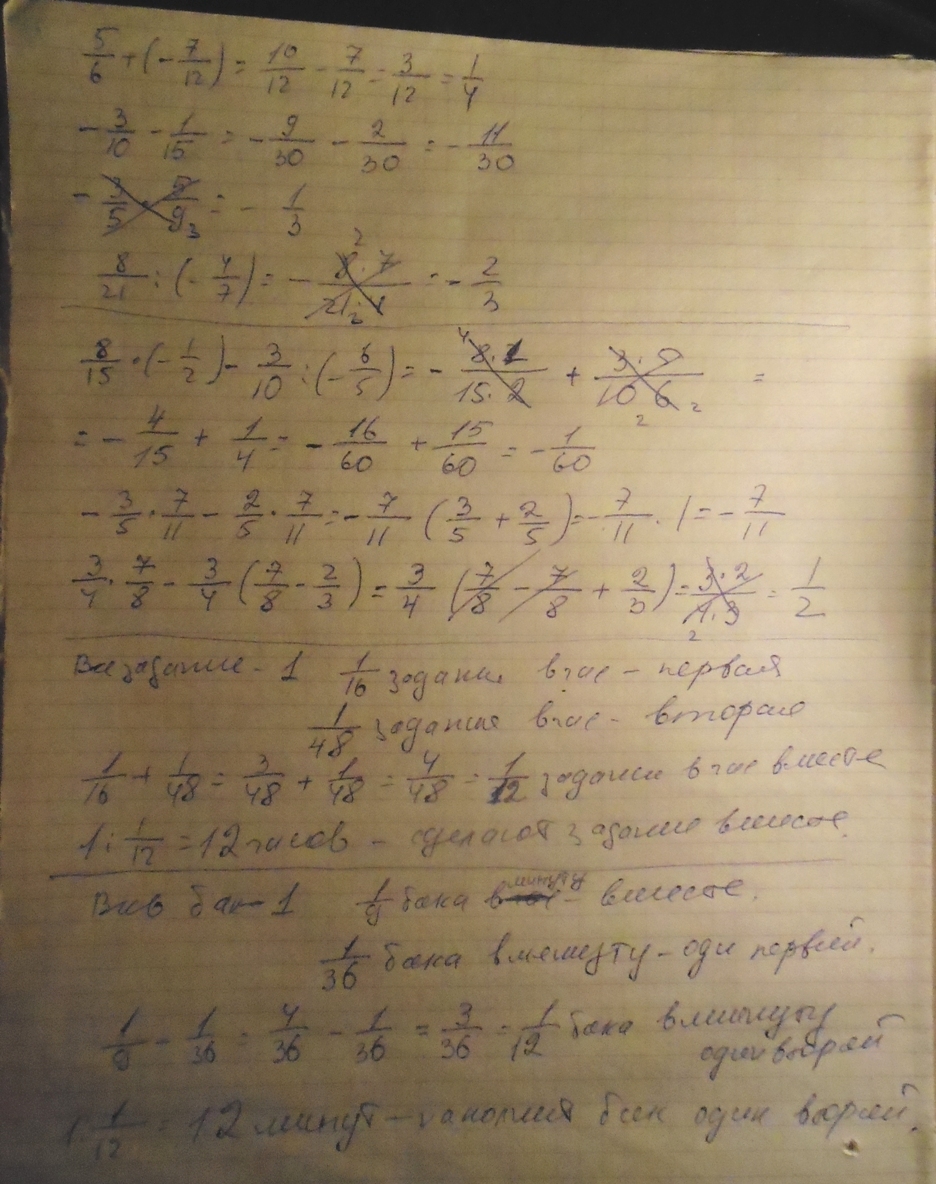 5/6 + (- 7/12) = 10/12 - 7/12 = 3/12 = 1/4
- 3/10 - 1/15 = - 9/30 - 2/30 = - 11/30
- 3/5 · 5/9 3 = - 1/3
8/21 : (- 4/7) = - 2 8·7/21·4 3 = - 2/3
8/15 · (- 1/2) - 3/10 : (- 6/5) = - 4 8·1/15·2 + 3·5/10·6 2 2 =
= - 4/15 + 1/4 = - 16/60 + 15/60 = - 1/60
- 3/5 · 7/11 - 2/5 · 7/11 = - 7/11 (3/5 + 2/5) = - 7/11 · 1 = - 7/11
3/4 · 7/8 - 3/4 (7/8 - 2/3) = 3/4 (7/8 - 7/8 + 2/3) = 3·2/4·3 2 = 1/2
Все задание - 1 1/16 задания в час - первая
1/48 задания в час - вторая
1/16 + 1/48 = 3/48 + 1/48 = 4/48 = 1/12 задания в час вместе
1 : 1/12 = 12 часов - сделают задание вместе.
Весь бак - 1 1/9 бака в минуту - вместе.
1/36 бака в минуту - один первый.
1/9 - 1/36 = 4/36 - 1/36 = 3/36 = 1/12 бака в минуту
один второй
1 : 1/12 = 12 минут - наполнит бак один второй.